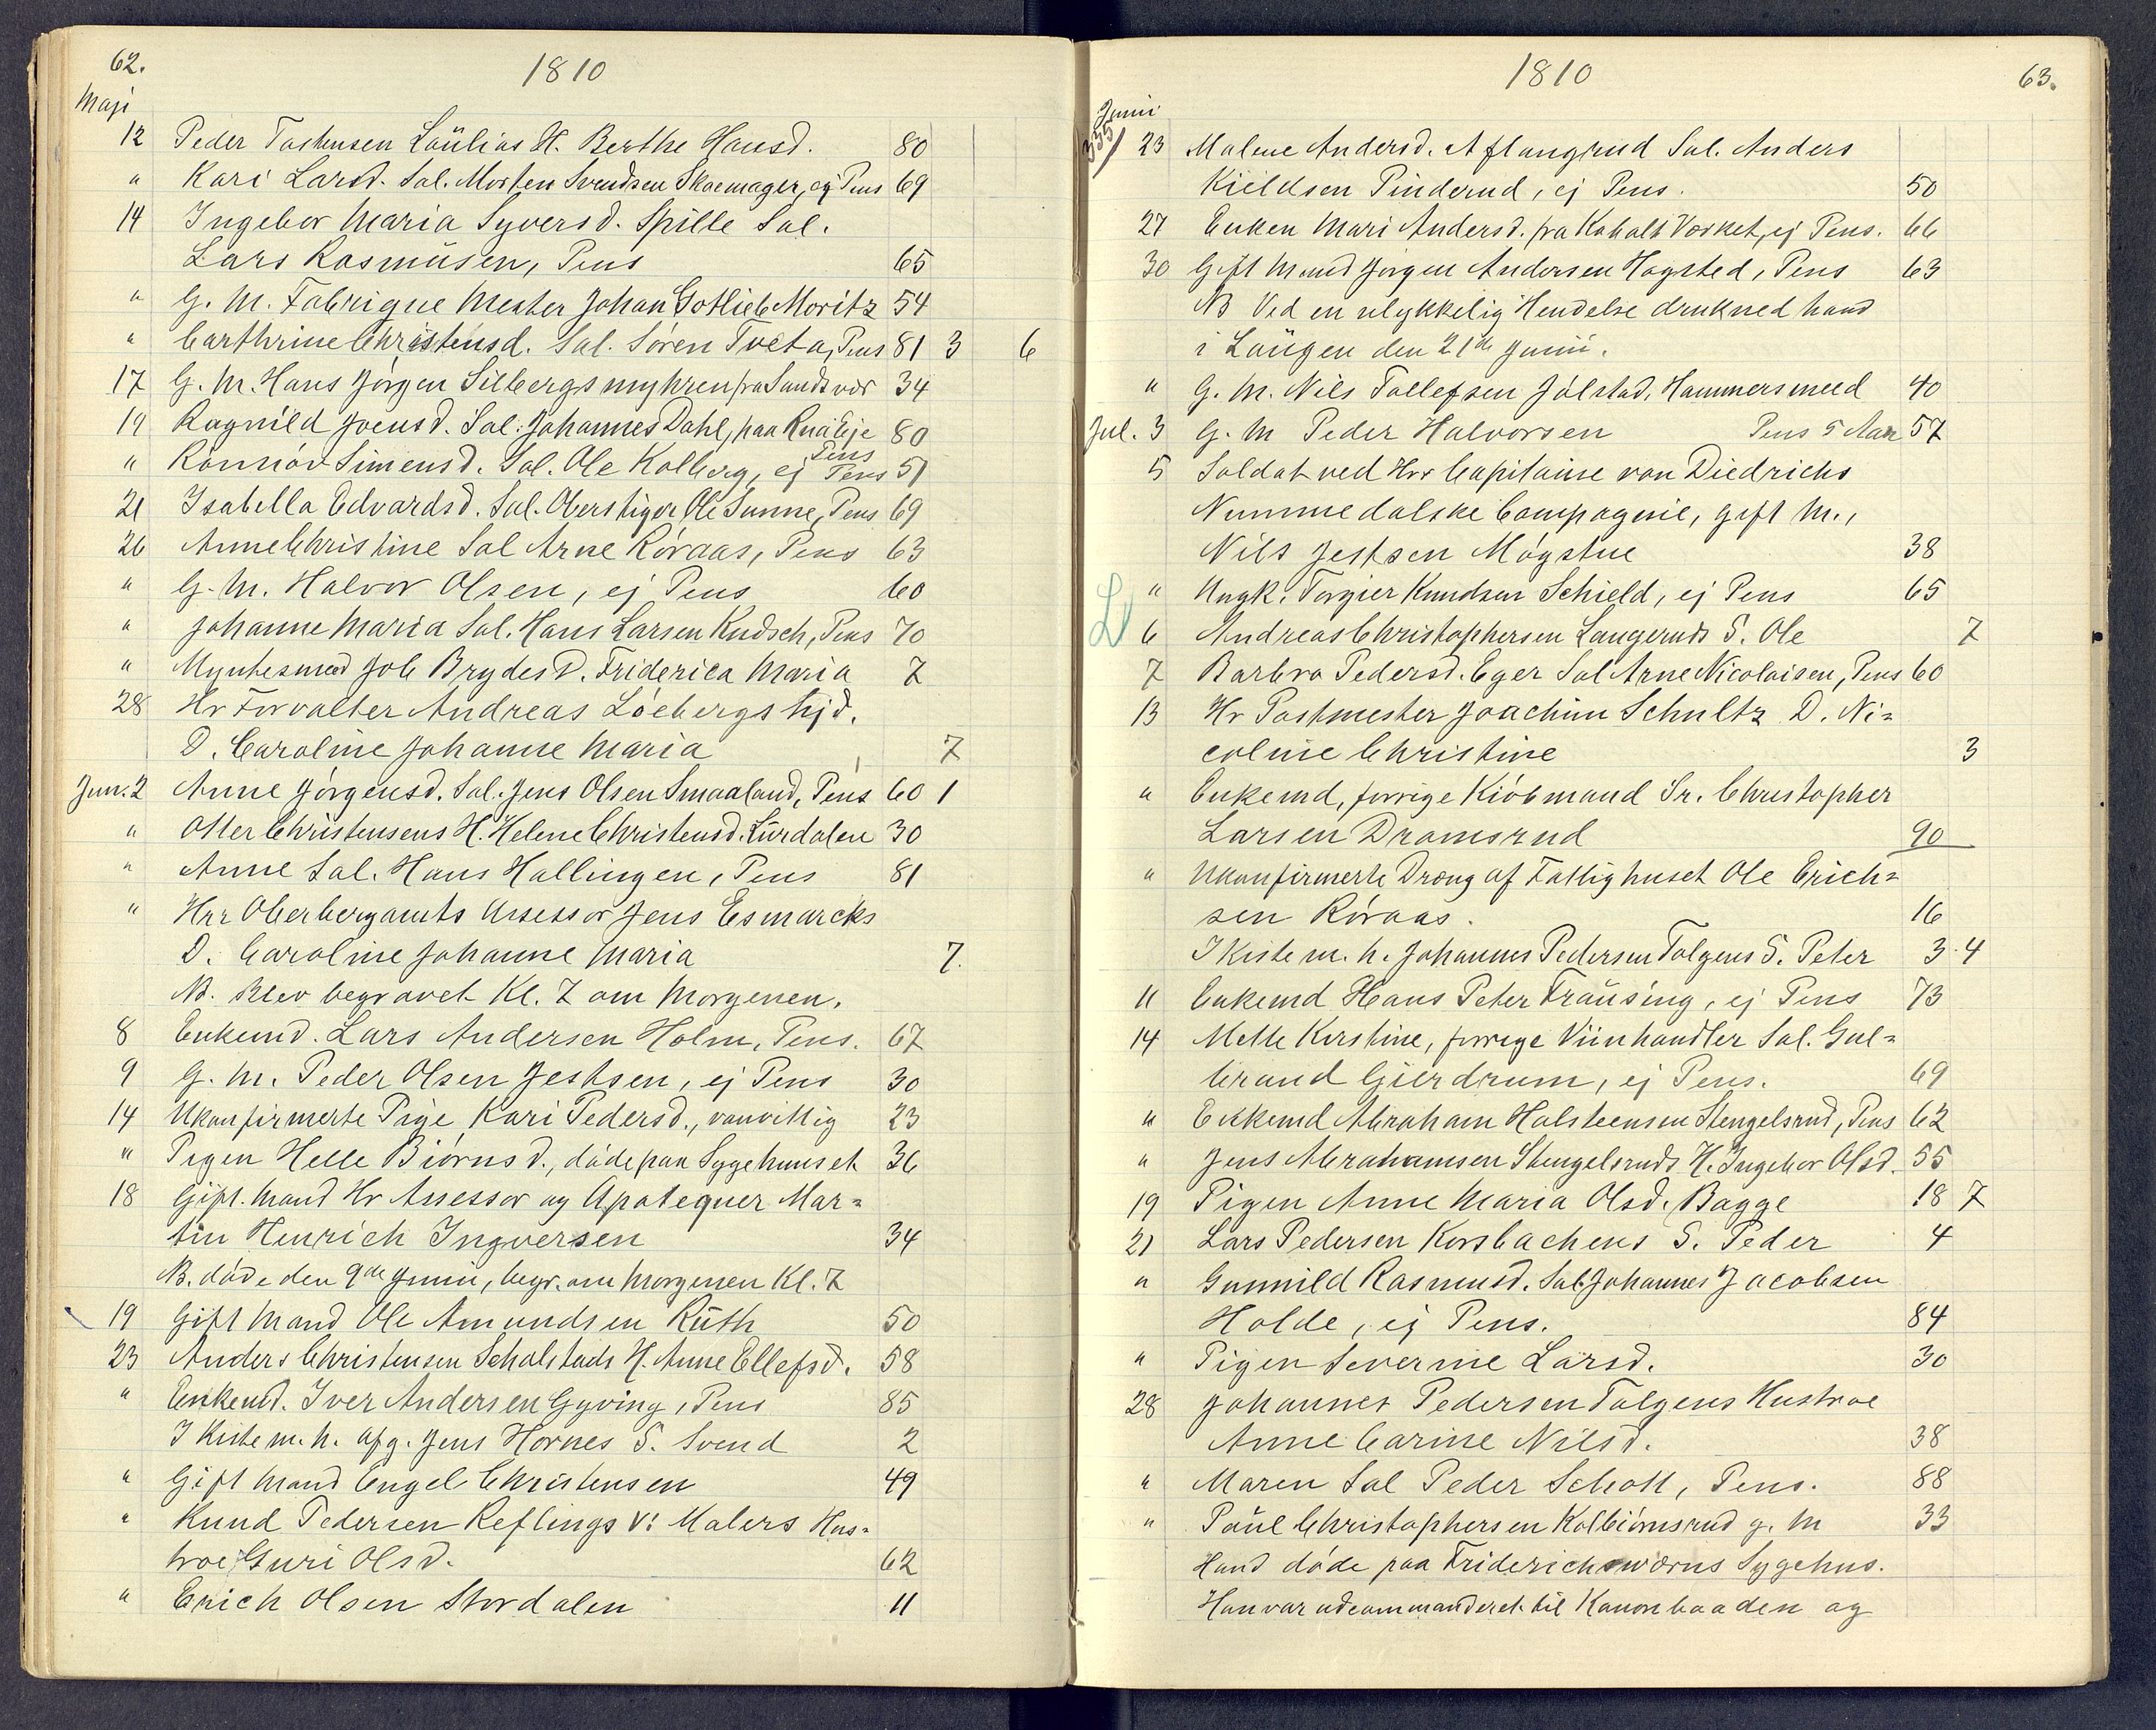 62.
1810
Maji
12 Peder Tostensen Laülias H. Berthe Hansd. 80
" Kari Larsd. Sal. Morten Svendsen Skoemager, ej Pens 69
14 Ingebor Maria Syversd. Spille Sal.
Lars Rasmüsen, Pens 65
" G. M. Fabrique Mester Johan Gotlieb Moritz 54
" Carthrine Christensd. Sal. Sören Tveta, Pens 81 3 6
17 G. M. Hans Jörgen Silbergsmyhren fra Sandsvær 34
19 Ragnild Joensd. Sal. Johannes Dahl, paa Eje 80
Pens
" Rönnöv Simensd. Sal. Ole Kolberg, ej Pens 51
21 Isabella Edvardsd. Sal. Oberstiger Ole Sunne, Pens 69
26 Anne Christine Sal Arne Röraas, Pens 63
" G. M. Halvor Olsen, ej Pens 60
" Johanne Maria Sal. Hans Larsen Kudsch, Pens 70
" Myntesmed Job Brydes D. Friderica Maria 7
28 Hr Forvalter Andreas Löebergs hjd.
D. Caroline Johanne Maria 7
Jun. 2 Anne Jörgensd. Sal. Jens Olsen Smaaland, Pens 60 1
" Oller Christensens H. Helene Christensd. Lürdalen 30
" Anne Sal. Hans Hallingen, Pens 81
" Hrr Oberbergamts Assessor Jens Esmarcks
D. Caroline Johanne Maria 7.
NB. Blev begravet Kl. 7 om Morgenen.
8 Enkemd. Lars Andersen Holm, Pens. 67
9 G. M. Peder Olsen Jestsen, ej Pens 30
14 Ukonfirmerte Pige Kari Pedersd., vanvittig 23
" Pigen Helle Biörnsd., döde paa Sygehuuset 36
18 Gift. Mand Hr Assessor og Apotequer Mar=
tin Henrich Ingversen 34
NB. döde den 9de Junii, begr. om Morgenen Kl. 7
19 Gift Mand Ole Amundsen Rüth 50
23 Anders Christensen Scholstads H. Anne Ellefsd. 58
" Enkemd. Iver Andersen Gyving, Pens 85
I Kiste m. h. afg. Jens Hornes S. Svend 2
" Gift Mand Engel Christensen 49
" Knud Pedersen Reflings v: Malers Hus=
troe Guri Olsd. 62
" Erich Olsen Stordalen 11
1810
63.
Junii
335/
23 Malene Andersd. Aflangrud Sal. Anders
Kieldsen Pinderud, ej Pens. 50
27 Enken Mari Andersd. fra Kobolt Værket, ej Pens. 66
30 Gift Mand Jörgen Andersen Hagsted, Pens 63
NB Ved en ulykkelig Hendelse drukned hand
i Laügen den 21de Junii.
" G. M. Nils Tollefsen Jölstad, Hammersmed 40
Jul. 3 G. M Peder Halvorsen Pens 5 Aar 57
5 Soldat ved Hrr Capitaine von Diedrichs
Nummedalske Compagnie, gift M.,
Nils Jestsen Mögstue 38
" Ungk. Torgier Knudsen Schield, ej Pens 65
6 Andreas Christophersen Langeruds S. Ole 7
7 Barbra Pedersd. Eger Sal Arne Nicolaisen, Pens 60
13 Hr Postmester Joachim Schultz D. Ni=
coline Christine 3
" Enkemd, forrige Kiöbmand Sr. Christopher
Larsen Dramsrud 90
" Ukonfirmerte Dreng af Fattighuset Ole Erich=
sen Röraas. 16
I Kiste m. h. Johannes Pedersen Tolgens S. Peter 3. 4
11 Enkemd Hans Peter Traüsing, ej Pens 73
14 Mette Kirstine, forrige Viinhandler Sal. Gul=
brand Gierdrum, ej Pens. 69
" Enkemd Abraham Halsteensen Stengelsrud, Pens 62
" Jens Abrahamsen Stengelsruds H. Ingebor Olsd. 55
19 Pigen Anne Maria Olsd. Bagge 18 7
21 Lars Pedersen Korsbachens S. Peder 4
" Gunnild Rasmusd. Sal. Johannes Jacobsen
Holde, ej Pens. 84
" Pigen Severine Larsd. 30
28 Johannes Pedersen Tolgens Hustroe
Anne Carine Nilsd. 38
" Maren Sal Peder Schott, Pens. 88
" Paül Christophersen Kolbiörnsrud g. M 33
Hand döde paa Friderichsværns Sygehus.
Han var udcommanderet til Kanonbaaden og